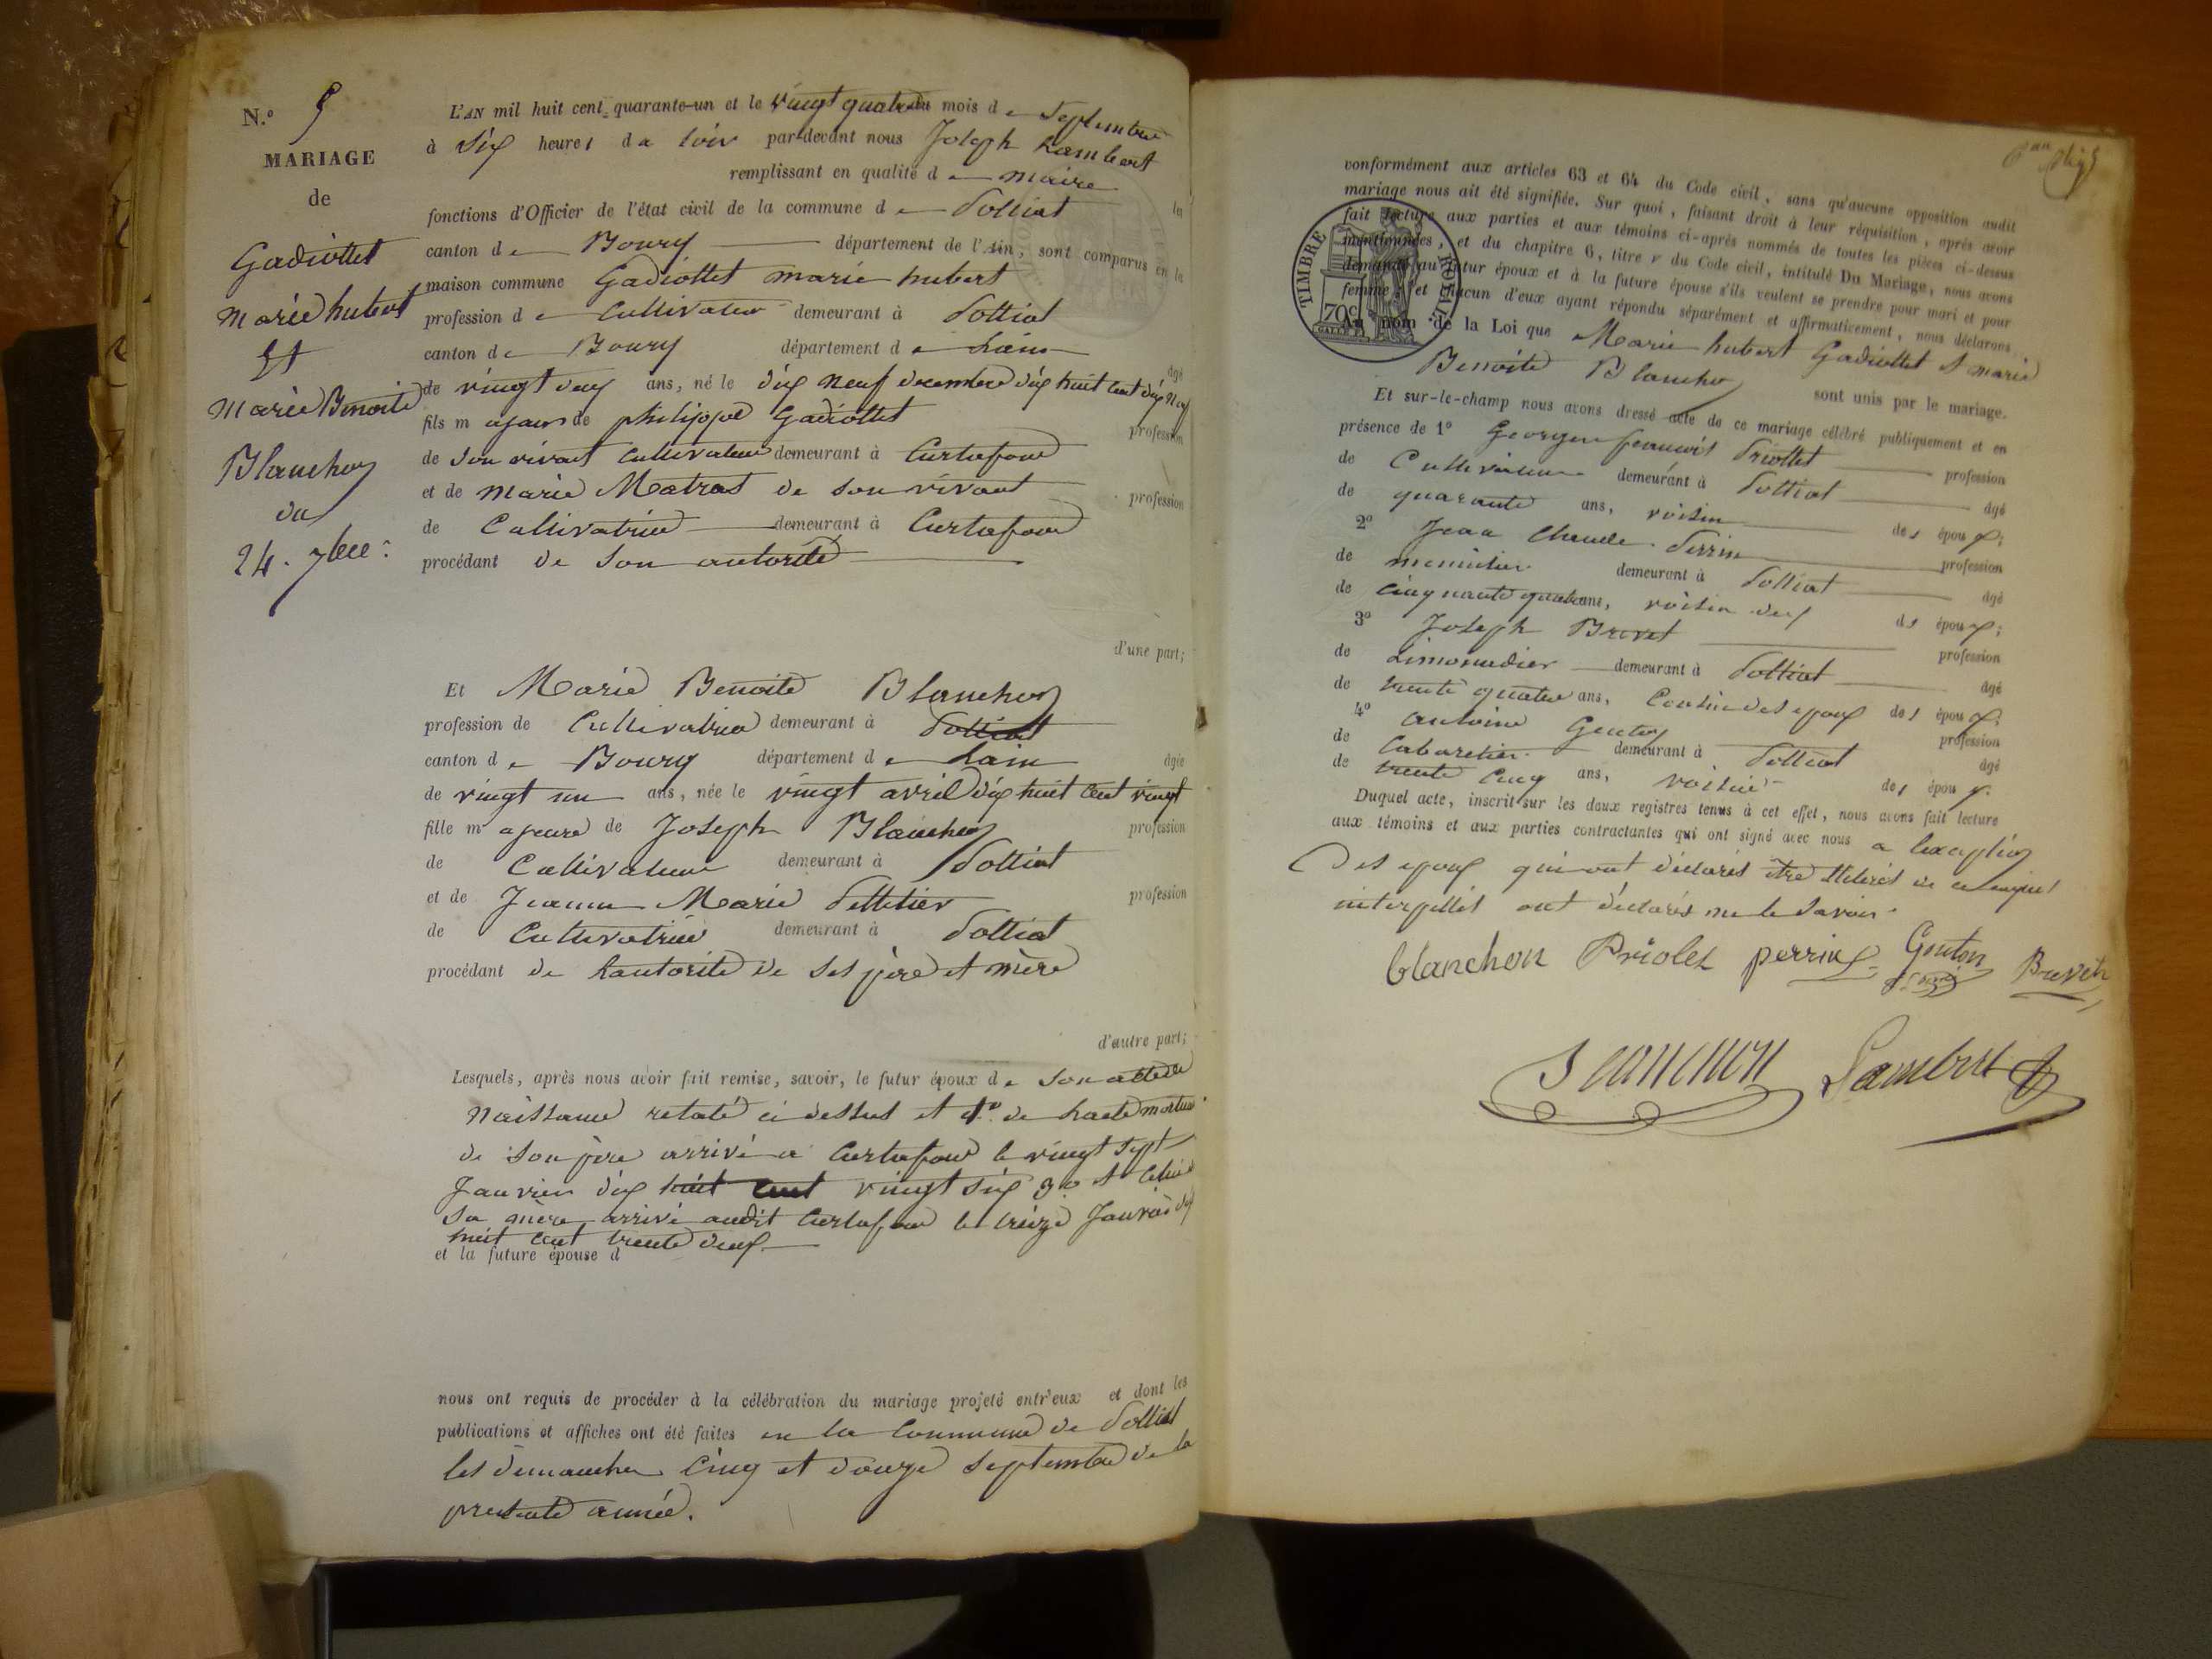 N.º 5
MARIAGE
de
Gadiollet
Marie hubert
Et
Marie Benoite
Blanchon
du
24. 7bre
L'AN mil huit cent quarante-un et le vingt quatre du mois de Septembre
à Six heures du Soir par-devant nous Joseph Lambert
remplissant en qualité de maire les
fonctions d'Officier de l'état civil de la commune de Polliat
canton de Bourg département de l'Ain, sont comparus en la
maison commune Gadiollet marie hubert
profession de Cultivateur demeurant à Polliat
canton de Bourg département de Lain
âgé
de vingt deux ans, né le dix neuf decembre dix huit cent dix neuf
fils majeur de philippe Gadiollet profession
de Son vivant Cultivateur demeurant à Curtafond
et de marie Matras de son vivant profession
de Cultivatrice demeurant à Curtafond
procédant de Son autorité
d'une part;
Et Marie Benoite Blanchon
profession de Cultivatrice demeurant à Polliat
canton de Bourg département de Lain âgée
de vingt un ans, née le vingt avril dix huit cent vingt
fille majeure de Joseph Blanchon profession
de Cultivateur demeurant à Polliat
et de Jeanne Marie Pelletier profession
de Cultivatrice demeurant à Polliat
procédant de Lautorité de ses père et mère
d'autre part;
Lesquels, après nous avoir fait remise, savoir, le futur époux de Son acte de
Naissance relaté ci dessus et de Lacte mortuaire
de Son père arrivé a Curtafond le vingt Sept
Janvier dix huit cent vingt six 3º et Celui
Sa mère arrivé audit Curtafond le treize Janvier dix
huit cent trente deux
et la future épouse d
nous ont requis de procéder à la célébration du mariage projeté entr'eux et dont les
publications et affiches ont été faites en la Commune de Polliat
les dimanches Cinq et douze Septembre de la
presente année.
conformément aux articles 63 et 64 du Code civil, sans qu'aucune opposition audit
mariage nous ait été signifiée. Sur quoi, faisant droit à leur réquisition, après avoir
fait lecture aux parties et aux témoins ci-après nommés de toutes les pièces ci-dessus
mentionnées, et du chapitre 6, titre v du Code civil, intitulé Du Mariage, nous avons
demandé au futur époux et à la future épouse s'ils veulent se prendre pour mari et pour
femme; et chacun d'eux ayant répondu séparément et affirmativement, nous déclarons
TIMBRE ROYAL
70c
Au nom de la Loi que Marie hubert Gadiollet et marie
Benoite Blanchon sont unis par le mariage.
Et sur-le-champ nous avons dressé acte de ce mariage célébré publiquement et en
présence de 1º Georges francois Priollet profession
de Cultivateur demeurant à Polliat âgé
de quarante ans, voisin des époux;
2º Jean Claude Perrin profession
de menuisier demeurant à Polliat âgé
de cinquante quatre ans, voisin des époux;
3º Joseph Brevet profession
de Limonadier demeurant à Polliat âgé
de trente quatre ans, Cousin des epoux des époux;
4º antoine Gouton profession
de Cabaretier demeurant à Polliat âgé
de trente Cinq ans, voisin des époux.
Duquel acte, inscrit sur les deux registres tenus à cet effet, nous avons fait lecture
aux témoins et aux parties contractantes qui ont signé avec nous a Lexception
Des epoux qui ont déclarés être illetérés de ce enquis
interpellés ont déclarés ne le Savoir.
blanchon Priolet perrin Gouton Brevet
Lambert